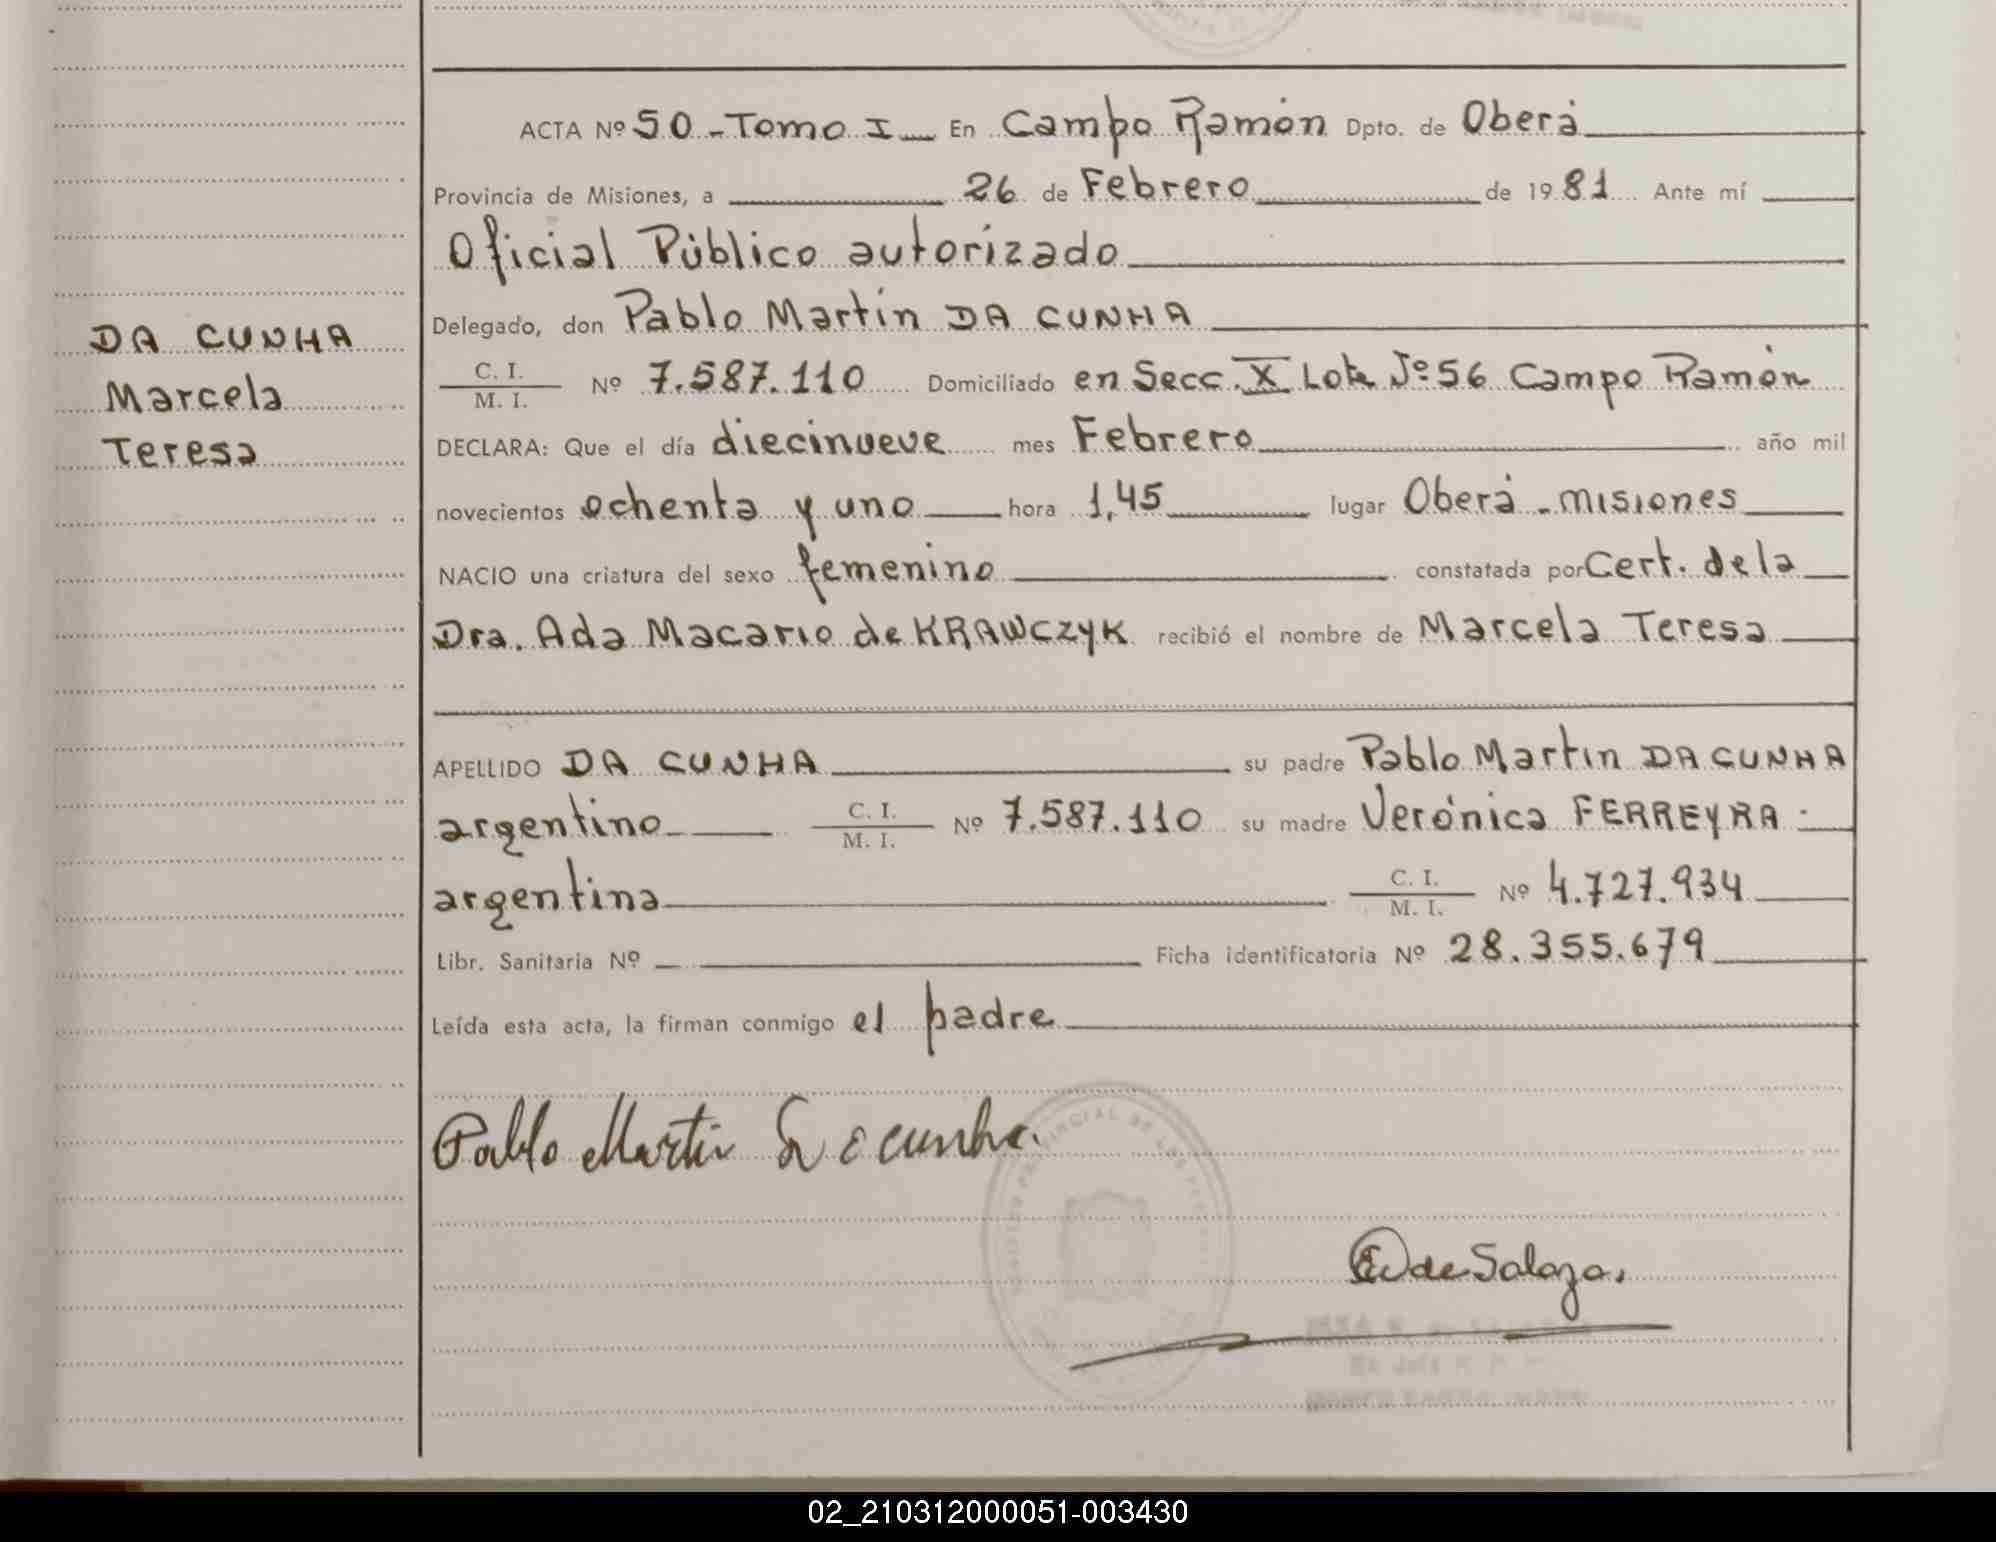 ACTA Nº 50 - Tomo I En Campo Ramón Dpto. de Oberá
Provincia de Misiones, a 26 de Febrero de 1981 Ante mí
Oficial Público autorizado
Delegado, don Pablo Martín DA CUNHA
C. I.
M. I. Nº 7.587.110 Domiciliado en Secc. X Lote Nº 56 Campo Ramón
DECLARA: Que el día diecinueve mes Febrero año mil
novecientos ochenta y uno hora 1,45 lugar Oberá - misiones
NACIO una criatura del sexo femenino constatada por Cert. de la
Dra. Ada Macario de KRAWCZYK recibió el nombre de Marcela Teresa
APELLIDO DA CUNHA su padre Pablo Martín DA CUNHA
argentino C. I.
M. I. Nº 7.587.110 su madre Verónica FERREYRA
argentina C. I.
M. I. Nº 4.727.934
Libr. Sanitaria Nº Ficha identificatoria Nº 28.355.679
Leída esta acta, la firman conmigo el padre
Pablo Martin Da cunha
de Salaza
DA CUNHA
Marcela
Teresa
02_210312000051-003430